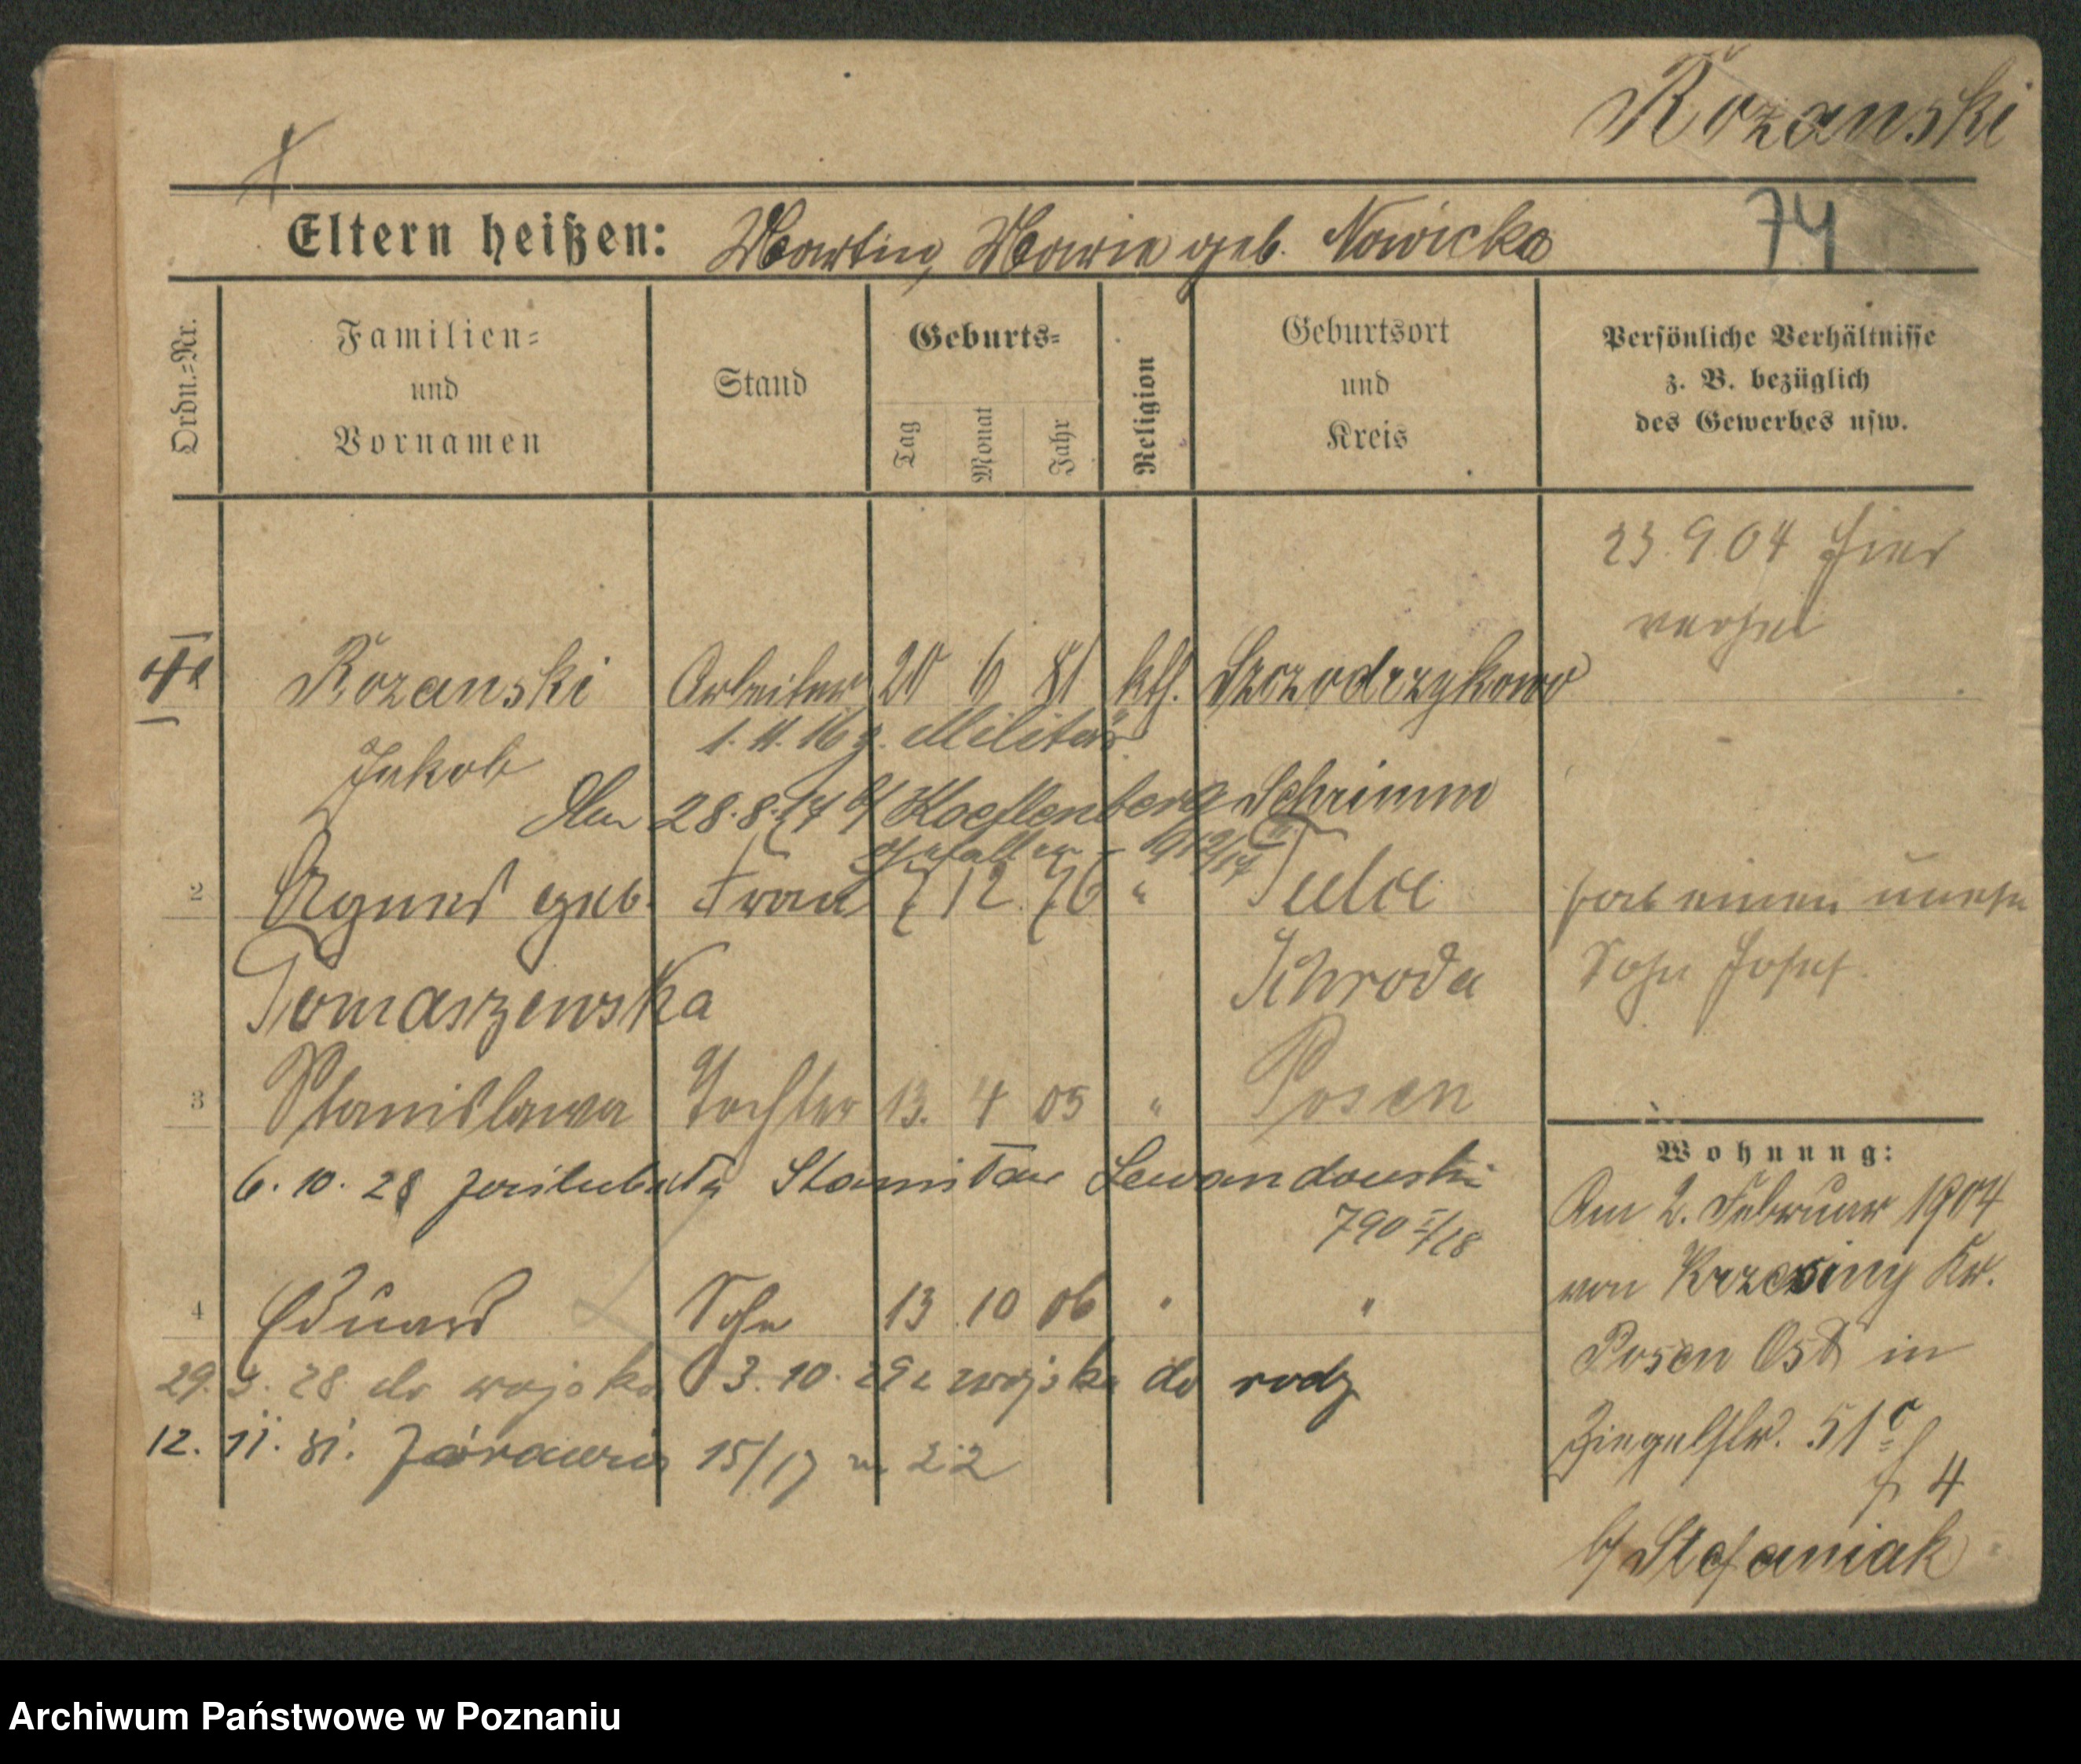 Rozanski
Eltern heißen: Martin, Marie geb. Nowicka
74
Ordn.-Nr.
Familien-
und
Vornamen
Stand
Geburts-
Tag
Monat
Jahr
Religion
Geburtsort
und
Kreis
Persönliche Verhältnisse
z. B. bezüglich
des Gewerbes usw.
23.9.04 hier
verh.
Rozanski Arbeiter 20 6 81 kth. Szczodrzykowo
1. 11. 16 z. Militär
Jakob
Am 28.8.17 Schrimm
gefallen
2 Agnes geb. Frau 7 12 76 " Tulce
hat einen unehe
Tomaszewska
Schroda
Sohn Josef
3 Stanislawa Tochter 13. 4 05 " Posen
6. 10. 28 Stanisław Lewandowski
790 I/28
4 Eduard Sohn 13 10 06 " "
29. 3. 28 do wojska 3. 10. 29 z wojska do rodz
12. 11. 31. Żórawia 15/17 m 22
Wohnung:
Am 2. Februar 1904
von Krzesiny Kr.
Posen Ost in
Ziegelstr. 51
4
b/ Stefaniak
Archiwum Państwowe w Poznaniu